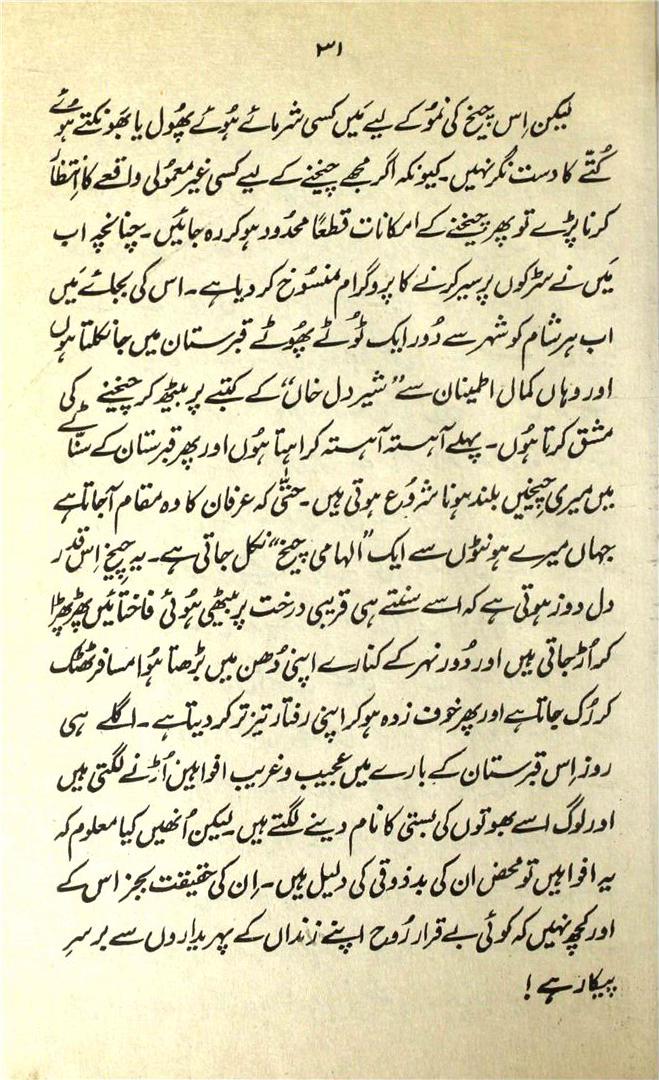 ۳۱
لیکن اِس چیخ کی نمُو کے لیے مَیں کسی شرمائے ہُوئے پھُول یا بھَونکتے ہُوئے
کُتّے کا دست نگر نہیں۔ کیونکہ اگر مجھے چیخنے کے لیے کسی غیر معمُولی واقعے کا اِنتظار
کرنا پڑے تو پھر چیخنے کے امکانات قطعاً محدُود ہو کر رہ جائیں۔ چنانچہ اب
مَیں نے سڑکوں پر سیر کرنے کا پروگرام منسُوخ کر دیا ہے۔ اس کی بجائے مَیں
اب ہر شام کو شہر سے دُور ایک ٹُوٹے پھُوٹے قبرستان میں جا نکلتا ہوں
اور وہاں کمال اطمینان سے ”شیر دل خاں“ کے کتبے پر بیٹھ کر چیخنے کی
مشق کرتا ہُوں۔ پہلے آہستہ آہستہ کراہتا ہُوں اور پھر قبرستان کے سنّاٹے
میں میری چیخیں بلند ہونا شرُوع ہوتی ہیں۔ حتیّٰ کہ عرفان کا وہ مقام آ جاتا ہے
جہاں میرے ہونٹوں سے ایک ”الہامی چیخ“ نکل جاتی ہے۔ یہ چیخ اِس قدر
دل دوز ہوتی ہے کہ اسے سنتے ہی قریبی درخت پر بیٹھی ہُوئی فاختائیں پھڑپھڑا
کر اُڑ جاتی ہیں اور دُور نہر کے کنارے اپنی دُھن میں بڑھتا ہُوا مسافر ٹھٹک
کر رُک جاتا ہے اور پھر خوف زدہ ہو کر اپنی رفتار تیز تر کر دیتا ہے۔ اگلے ہی
روز اِس قبرستان کے بارے میں عجیب و غریب افواہیں اُڑنے لگتی ہیں
اور لوگ اسے بھوتوں کی بستی کا نام دینے لگتے ہیں۔ لیکن اُنھیں کیا معلوم کہ
یہ افواہیں تو محض ان کی بدذوقی کی دلیل ہیں۔ اِن کی حقیقت بجز اس کے
اور کچھ نہیں کہ کوئی بے قرار رُوح اپنے زنداں کے پہریداروں سے برسرِ
پیکار ہے!